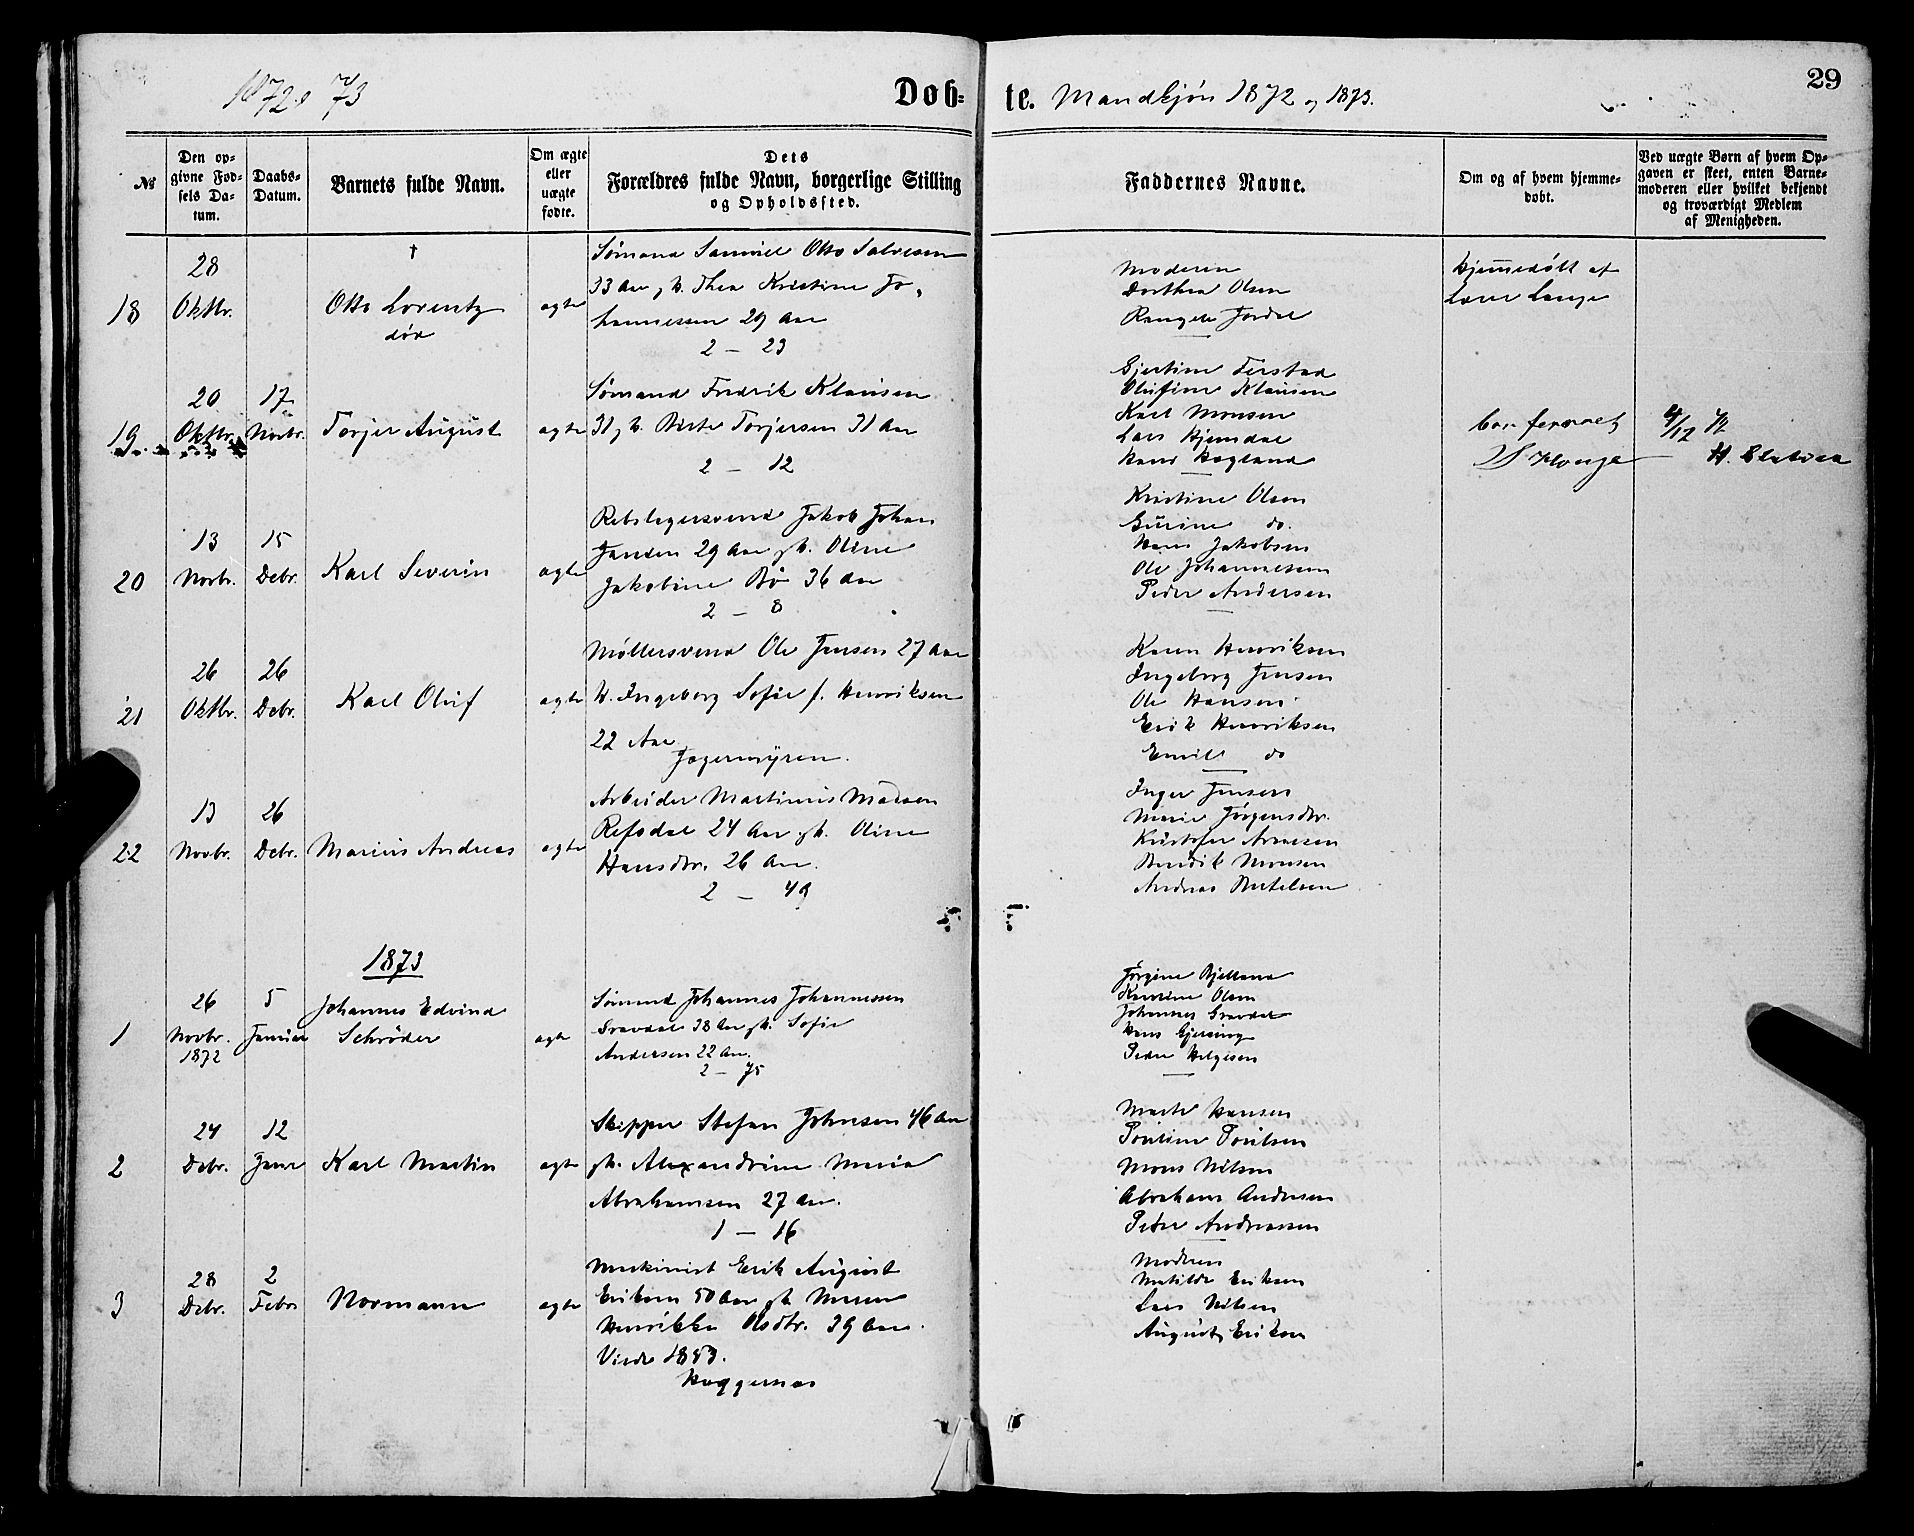 1872 73
Døb-
te. Mandkjøn 1872 og 1873.
29
No
Den op-
givne Fød-
sels Da-
tum.
Daabs-
Datum.
Barnets fulde Navn.
Om ægte
eller
uægte
fødte.
Dets
Forældres fulde Navn, borgerlige Stilling
og Opholdssted.
Faddernes Navne.
Om og af hvem hjemme-
døbt.
Ved uægte Børn af hvem Op-
gaven er skeet, enten Barne-
moderen eller hvilket bekjendt
og troværdigt Medlem
af Menigheden.
18
28
Oktbr.
†
Otto Lorentz
død
ægte
Sømand Samuel Otto Salvesen
33 Aar, h. Thea Kristine Jo-
hannessen 29 Aar
2 – 23
Moderen
Dorthea Olsen
Hjemmedøbt af
19
20 17
Oktbr. Novbr.
Torjer August
ægte
Sømand Fredrik Klausen
31, h. Birte Torjersen 31 Aar
2 – 12
Gjertine Terstad
Olufine Klausen
Karl Monsen
Lars Hjemdal
Hans Høgland
4/12
20
13 15
Novbr. Debr.
Karl Severin
ægte
Rebslagersvend Jakob Johan
Jansen 29 Aar gh. Oline
Jakobine Bø 36 Aar
2 – 8
Kristine Olsen
Gurine do.
Hans Jakobsen
Ole Johannessen
Peder Andersen
21
26 26
Oktbr. Debr.
Karl Oluf
ægte
Møllersvend Ole Jensen 27 Aar
h. Ingeborg Sofie f. Henriksen
22 Aar
Jægermyren.
Karen Henriksen
Ingeborg Jensen
Ole Hansen
Erik Henriksen
Emil do
22
13 26
Novbr. Debr.
Marius Andreas
ægte
Arbeider Martinius Madsen
Refsdal 24 Aar gh. Oline
Hansdtr. 26 Aar.
2 – 49
Inger Jensen
Marie Jørgensdtr.
Kristofer Arnesen
Bendik Monsen
Andreas Bertelsen
1873
1
26 5
Novbr. Januar
1872
Johannes Edvind
Schrøder
ægte
Sømand Johannes Johannessen
Gravdal 38 Aar gh. Sofie
Andersen 22 Aar.
2 – 75
Jørgine Bjelland
Olsen
Johannes Gravdal
Peder Helgesen
2
24 12
Debr. Janr
Karl Martin
ægte
Skipper Stefan Johnsen 46 Aar
gh. Alexandrine Maria
Abrahamsen 27 Aar.
1 – 16
Marte Hansen
Pouline Poulsen
Mons Nilsen
Abraham Andersen
Peter Andreassen
3
28 2
Debr. Febr
Normann
ægte
Maskinist Erik August
Eriksen 50 Aar gh. Maren
Henrikke Olsdtr. 39 Aar.
Viede 1853.
Haggernæs
Moderen
Matilde Eriksen
Lars Nilsen
August Eriksen